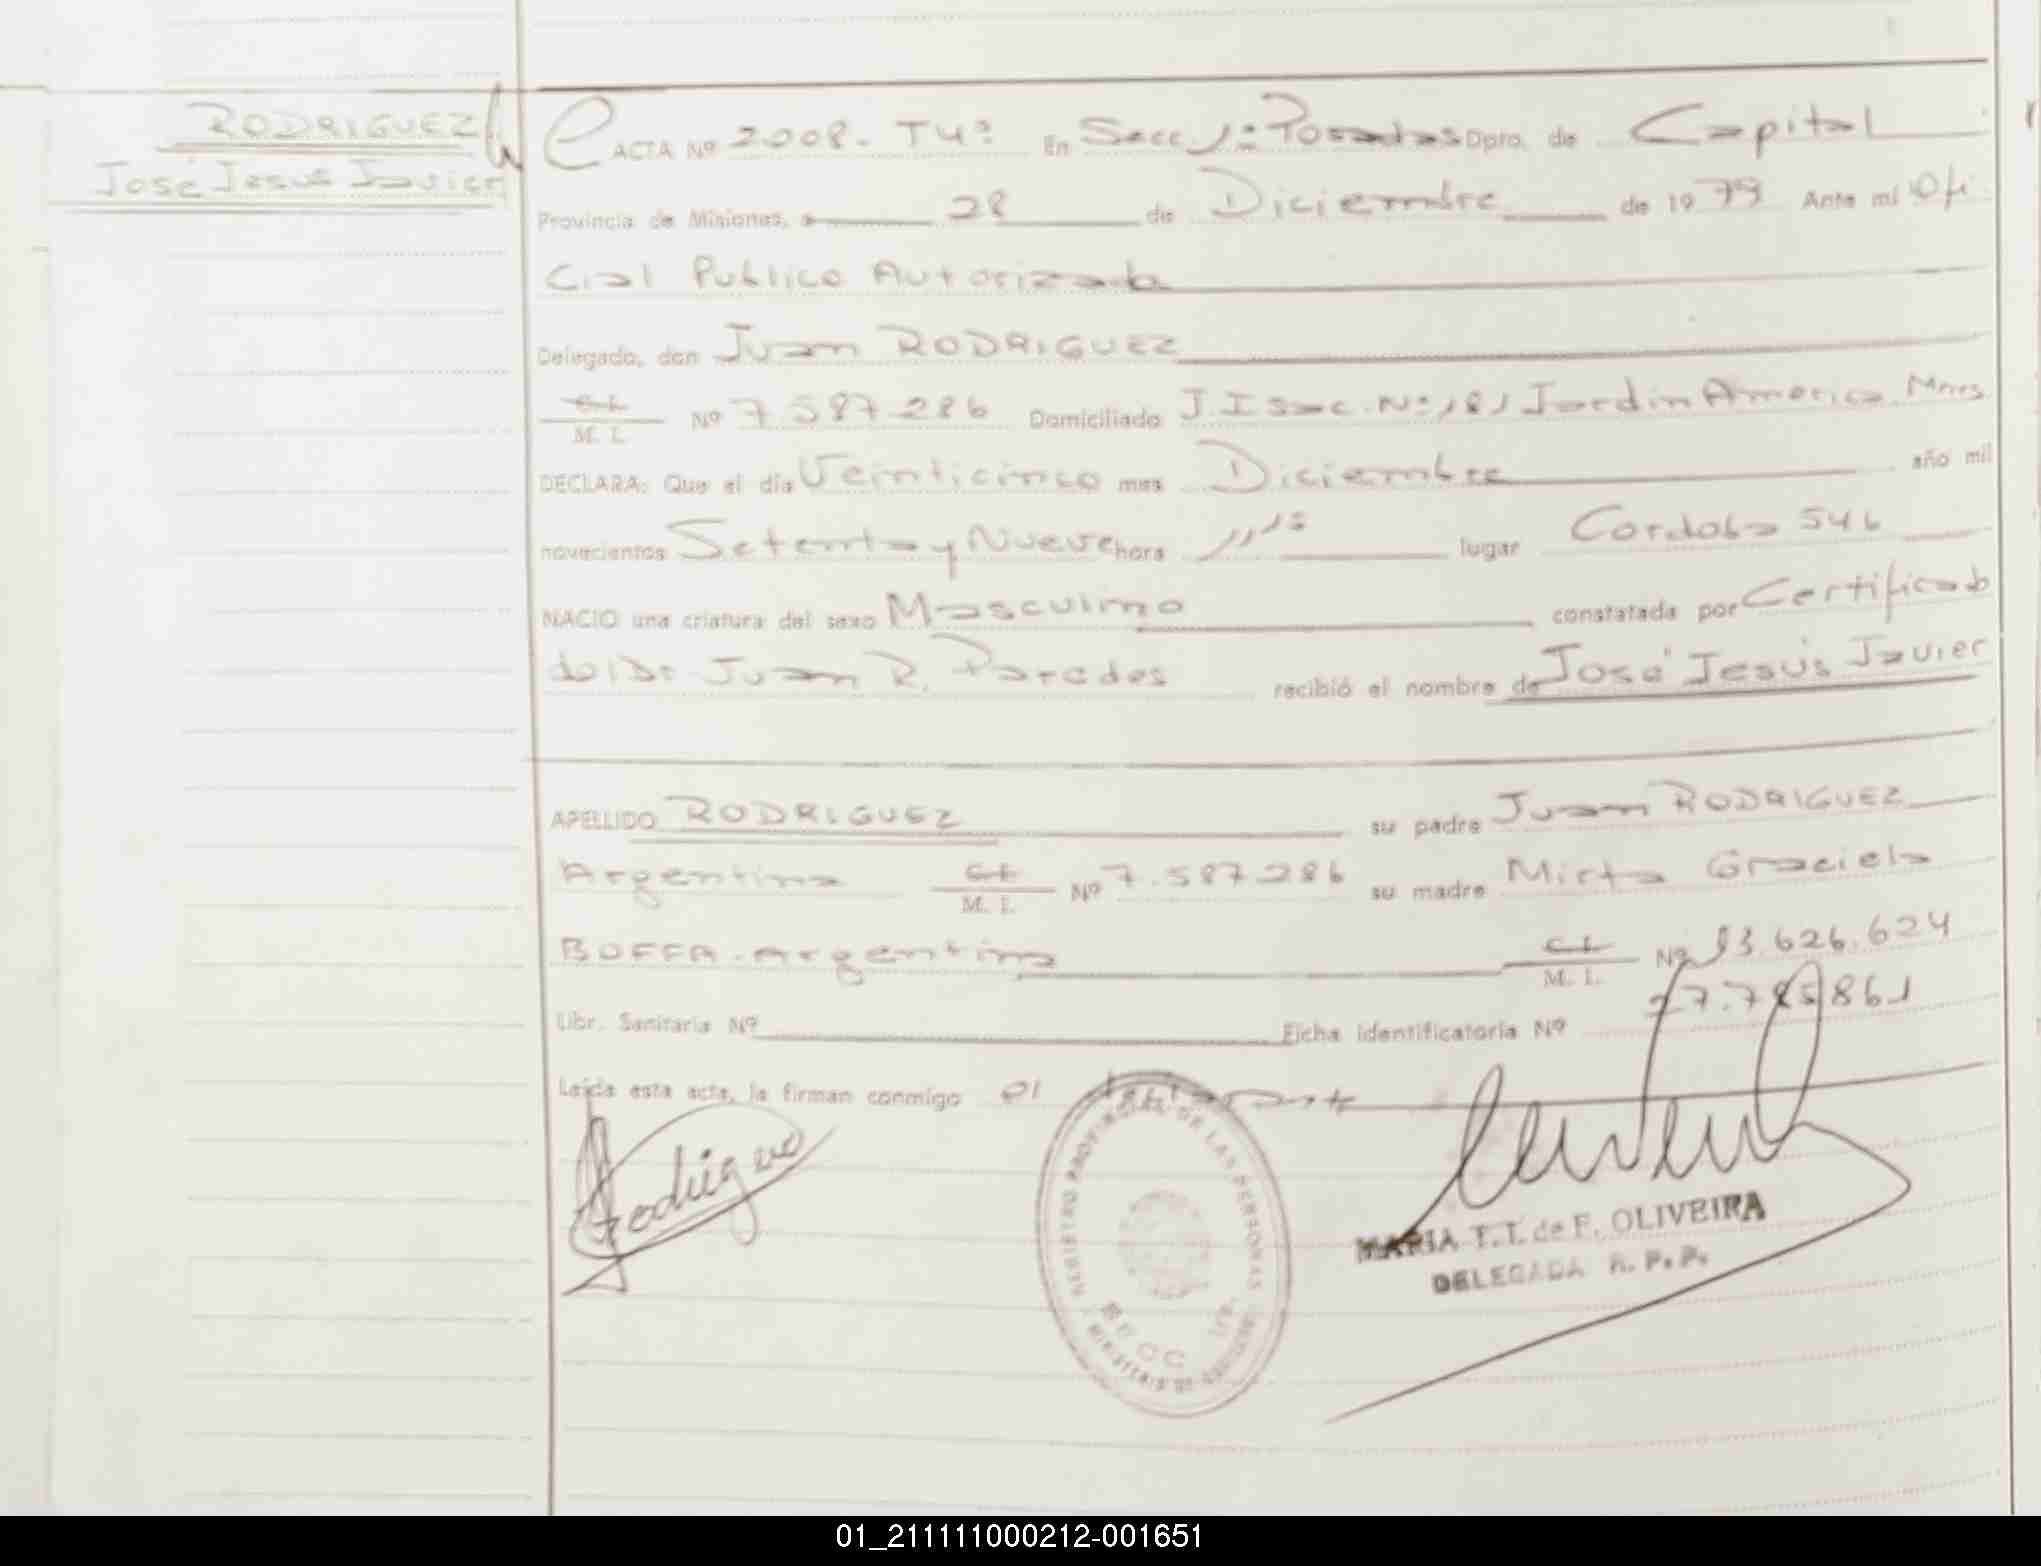 RODRIGUEZ
José Jesús Javier
ACTA Nº 2008. T4º En Secc 1ª Posadas Dpto. de Capital
Provincia de Misiones, a 28 de Diciembre de 1979 Ante mi Ofi
cial Publico Autorizado
Delegado, don Juan RODRIGUEZ
C.I. M. I. Nº 7.587.286 Domiciliado J. I Sac. Nº 181 Jardin America Mnes
DECLARA: Que el día Veinticinco mes Diciembre año mil
novecientos Setenta y Nueve hora lugar Cordoba 546
NACIO una criatura del sexo Masculino constatada por Certificado
del Dr Juan R. Paredes recibió el nombre de José Jesús Javier
APELLIDO RODRIGUEZ su padre Juan RODRIGUEZ
Argentina C.I. M. I. Nº 7.587.286 su madre Mirta Graciela
BOFFA - Argentina C.I. M. I. Nº 13.626.624
Libr. Sanitaria Nº Ficha identificatoria Nº 27.785861
Leída esta acta, la firman conmigo el
Rodriguez
REGISTRO PROVINCIAL DE LAS PERSONAS
MARIA T. T. de F. OLIVEIRA
DELEGADA R. P. P.
01_211111000212-001651